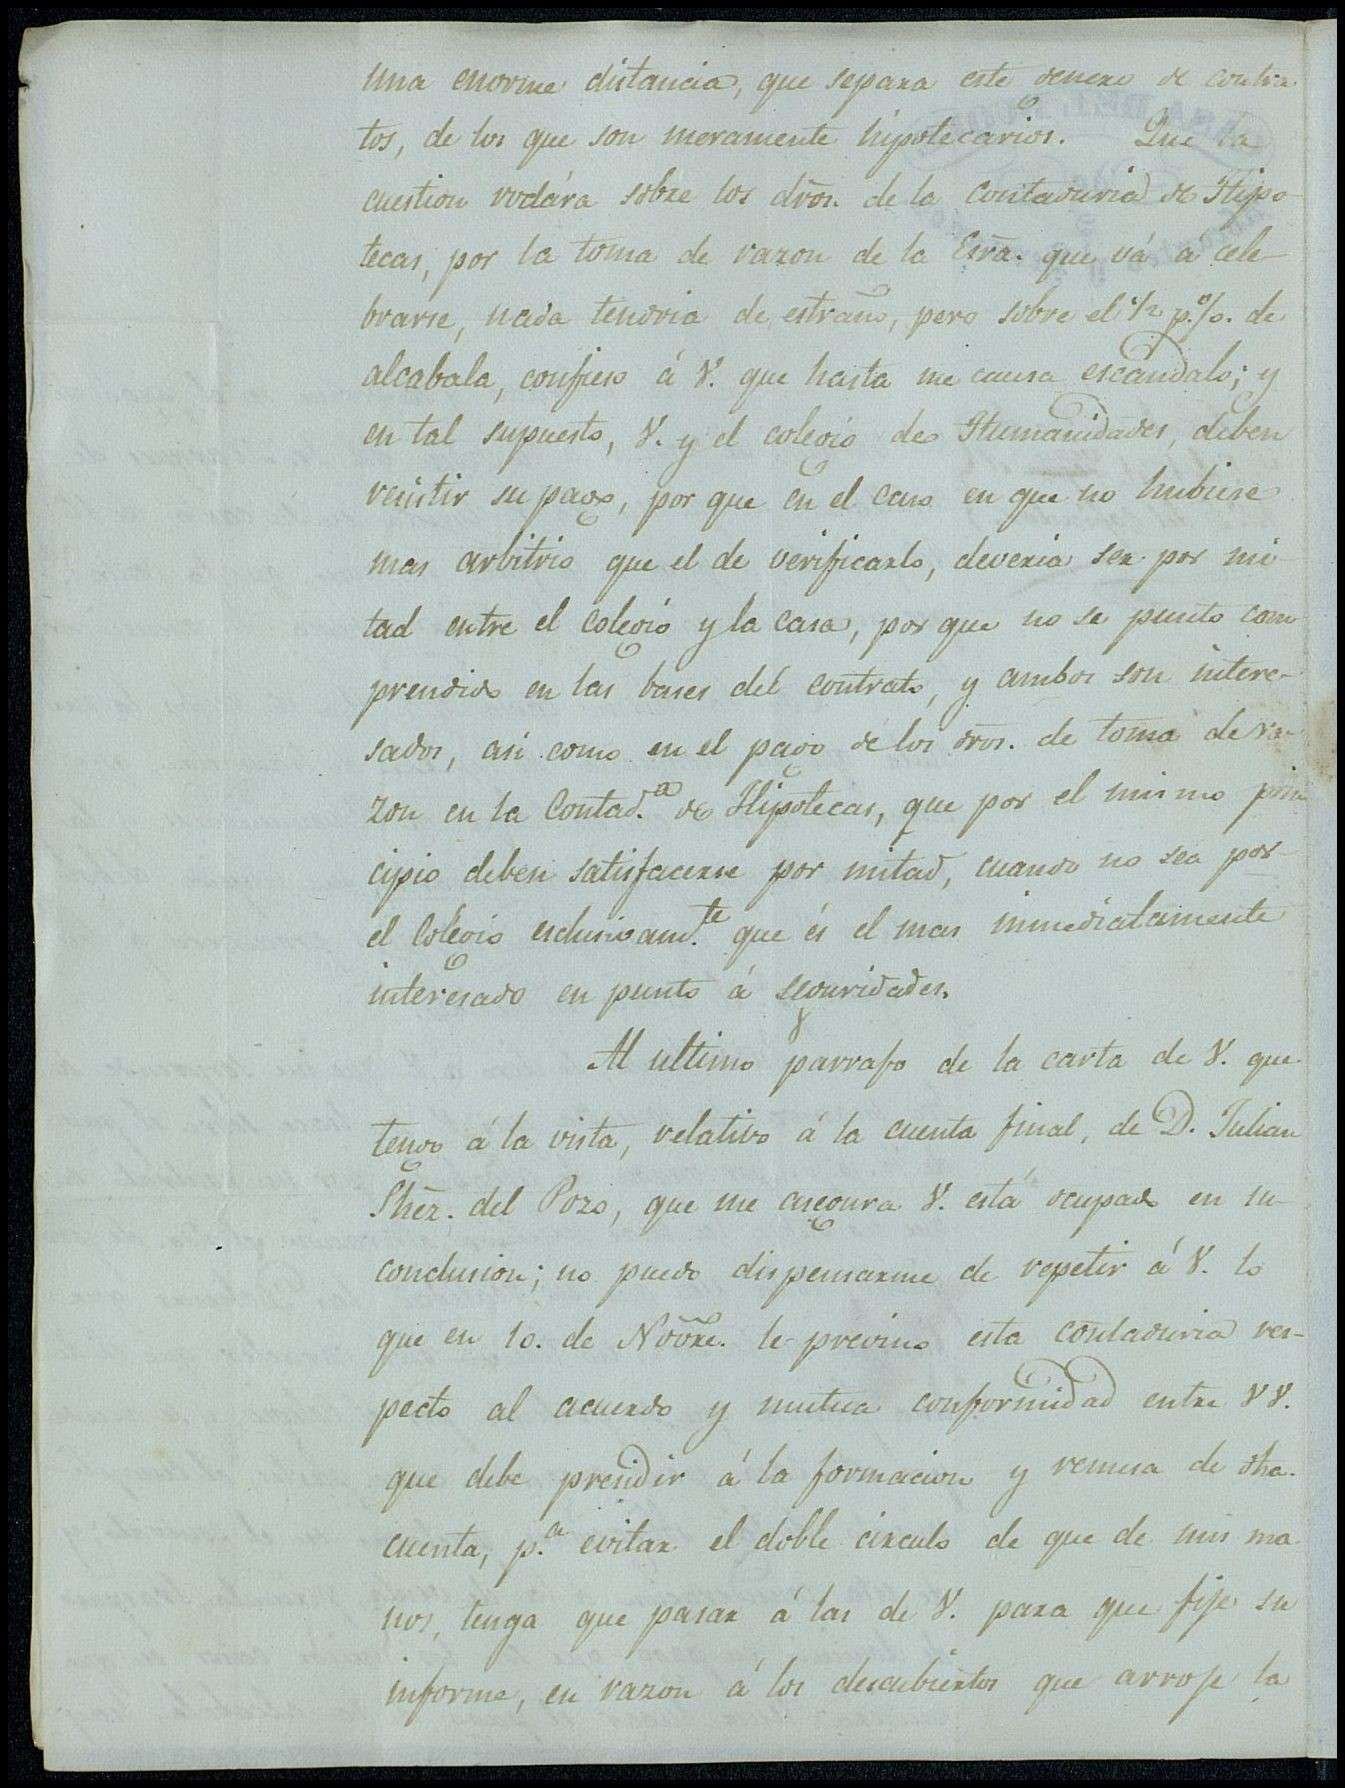 una enorme distancia, que separa este genero de contra
tos, de los que son meramente hipotecarios. Que la
cuestion rodára sobre los dros. de la contaduria de Hipo-
tecas, por la toma de razon de la Esra. que vá á cele-
brarse, nada tendria de estraño, pero sobre el 1/2 p.% de
alcabala, confieso á V. que hasta me causa escandalo; y
en tal supuesto, V. y el colegio de Humanidades, deben
resistir su pago, por que en el caso en que no hubiese
mas arbitrio que el de verificarlo, deveria ser por mi
tad entre el colegio y la casa, por que no se punto com-
prendido en las bases del contrato, y ambos son intere-
sados, asi como en el pago de los dros. de toma de ra-
zon en la Contad.a de Hipotecas, que por el mismo prin
cipio deben satisfacerse por mitad, cuando no sea por
el Colegio esclusivam.te que és el mas inmediatamente
interesado en punto á seguridades.
Al ultimo parrafo de la carta de V. que
tengo á la vista, relativo á la cuenta final, de D. Julian
Shez. del Pozo, que me asegura V. está ocupado en su
conclusion; no puedo dispensarme de repetir á V. lo
que en 10. de Novre. le previno esta contaduria res-
pecto al acuerdo y mutua conformidad entre VV.
que debe presidir á la formacion y remesa de dha.
cuenta, p.a evitar el doble circulo de que de mis ma
nos, tenga que pasar á las de V. para que fije su
informe, en razon á los descubiertos que arroje la